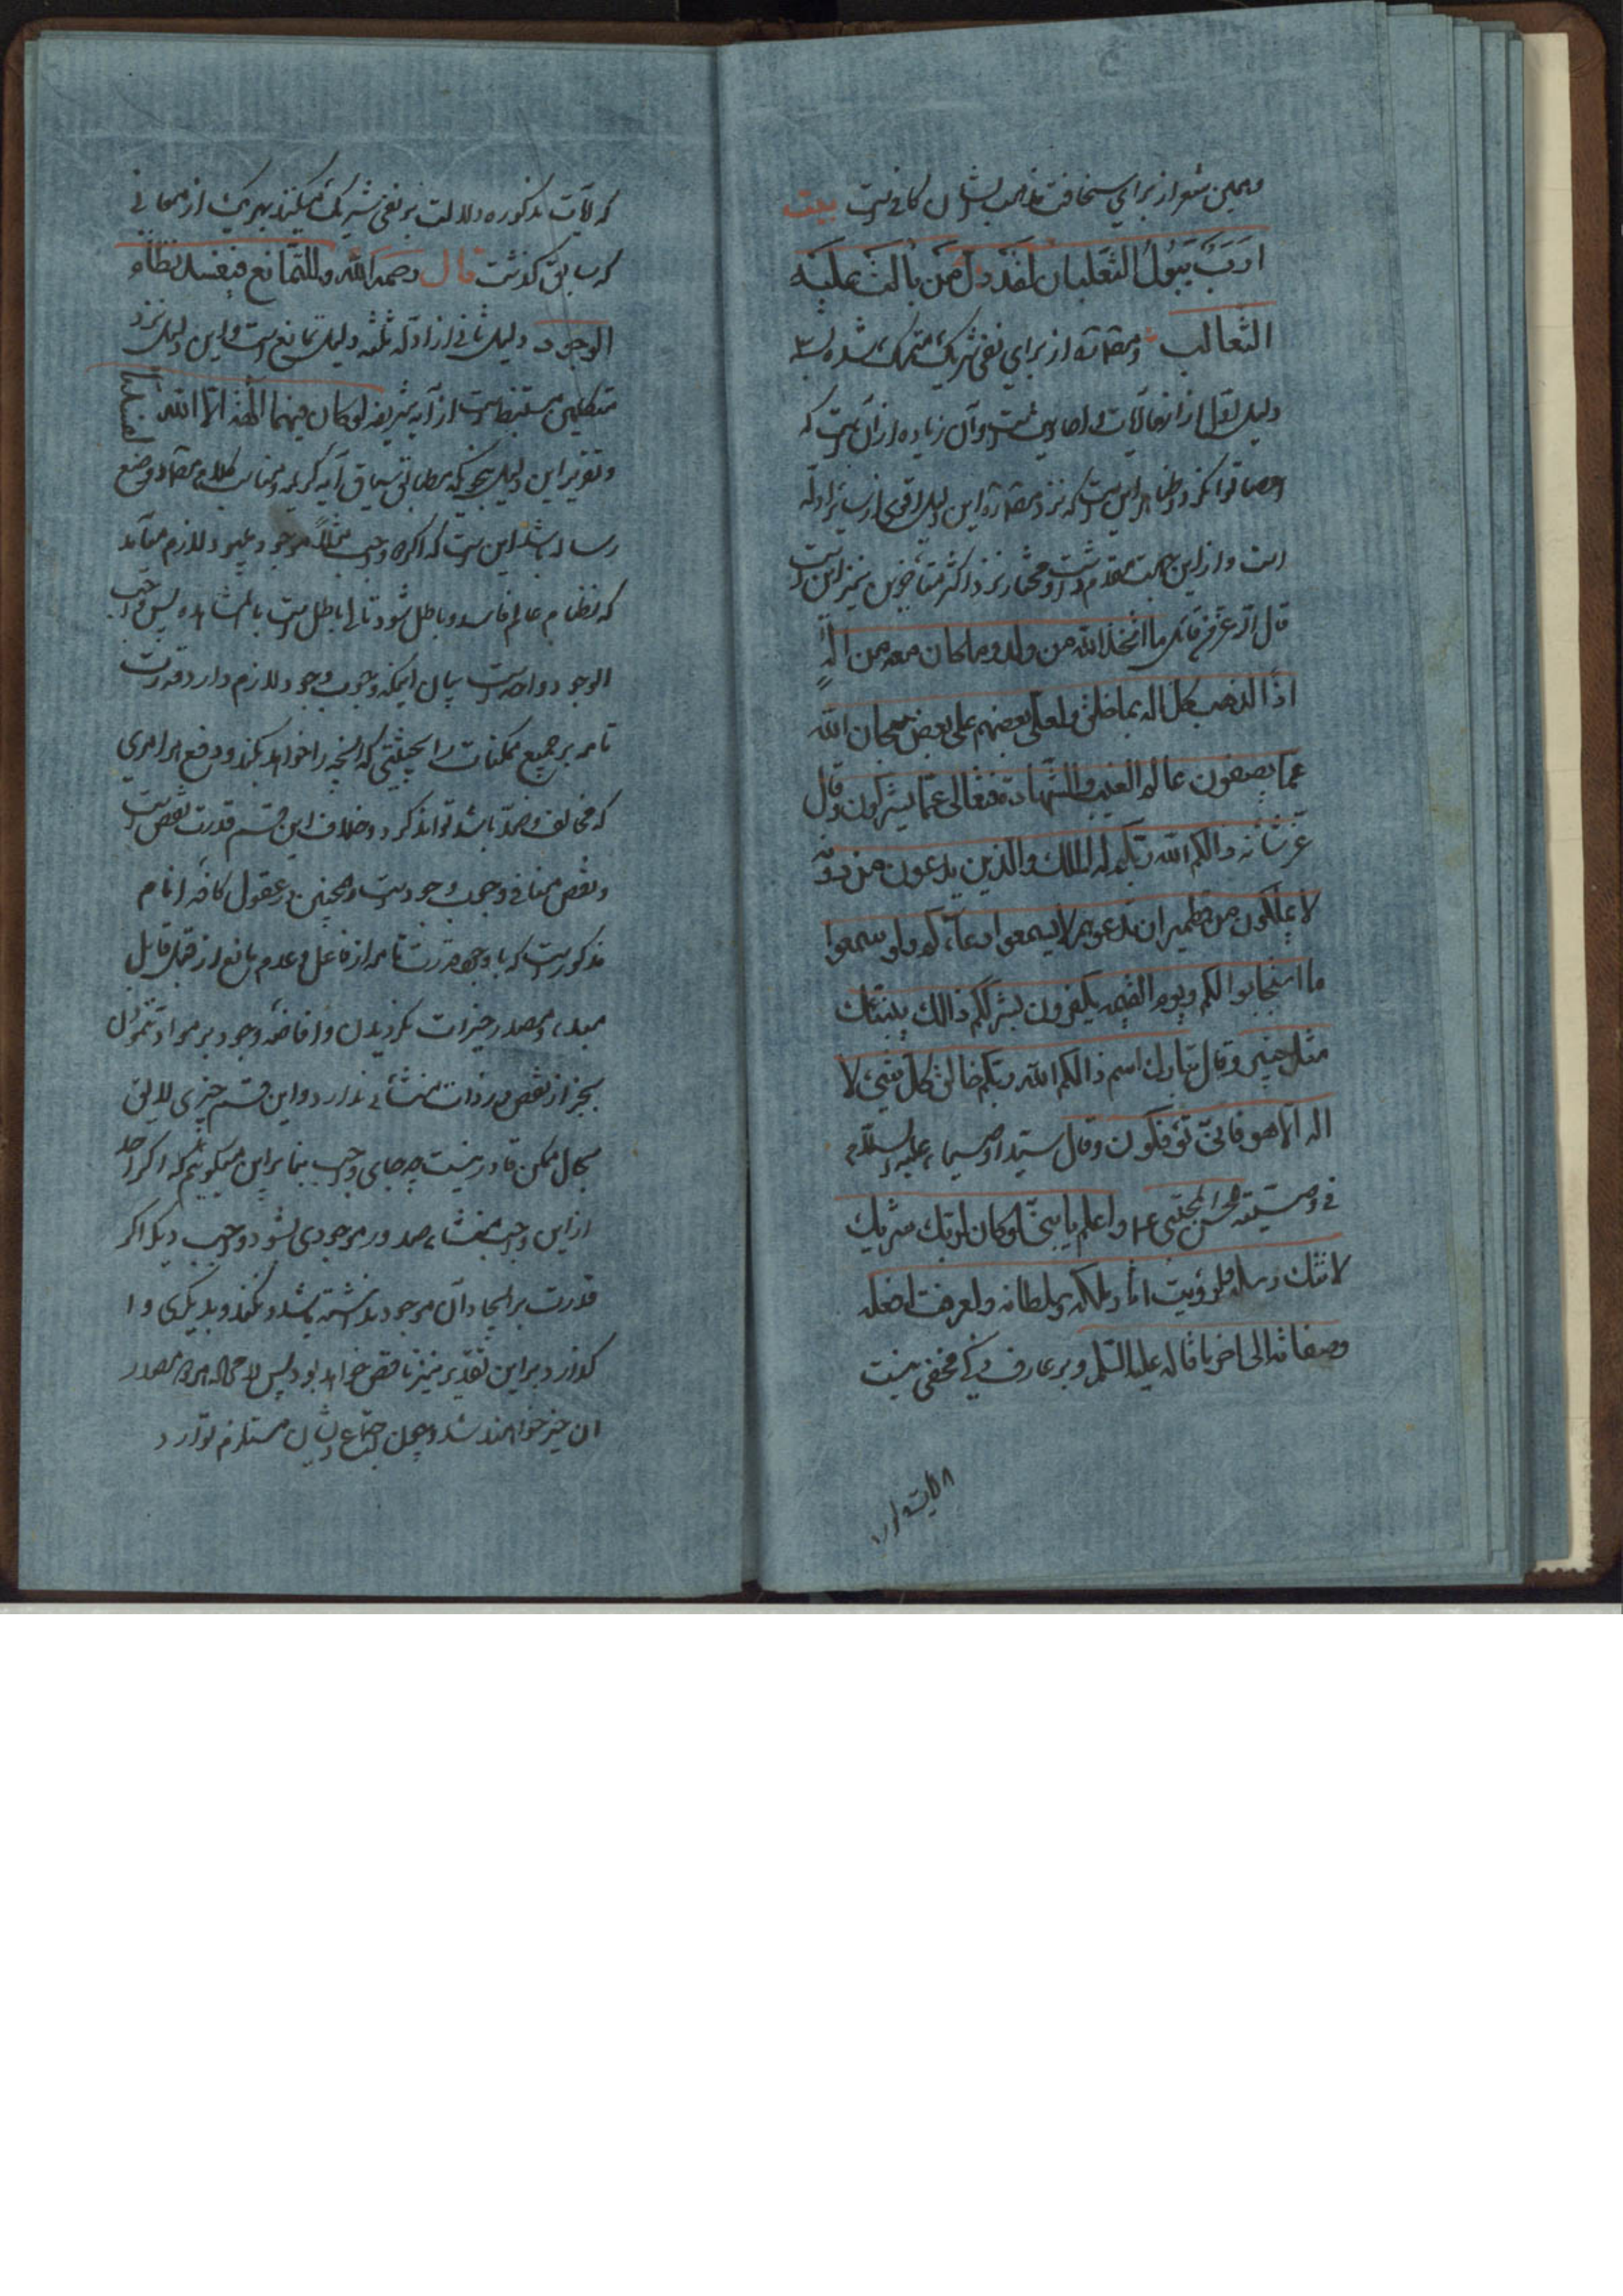 وهمین شعر از برای سخافت مذهب ایشان کافی است بیت
ارَبٌّ یَبُولُ الثعلبان لقَد ذل مَن بالت علیه
الثعالب و از برای نفی شریک متمسک شده
دلیل اول از آیات و احادیث است و آن زیاده از آن است که
احصا توان کرد و ظاهر این است که نزد این دلیل اقوی از سایر ادله
است و از این جهت مقدم داشت و مختار نزد اکثر متأخرین نیز این است
قال الله عز من قائل ما اتخذ الله من ولد وما کان معه من اله
اذا لذهب کل اله بما خلق ولعلی بعضهم علی بعض سبحان الله
عما یصفون عالم الغیب والشهادة فتعالی عما یشرکون وقال
عز شانه ذالکم الله ربکم له الملک والذین یدعون من دونه
لا یملکون من قطمیر ان تدعوهم لا یسمعوا دعآءکم ولو سمعوا
ما استجابوا لکم ویوم القیمه یکفرون بشرککم ذالک ینبئک
مثل خبیر وقال تبارک اسمه ذالکم الله ربکم خالق کل شیء لا
اله الا هو فانی تؤفکون وقال سید اوصیاء علیه السلام
فی وصیته للحسن المجتبی ع واعلم یا بنی لو کان لربک شریک
لاتتک رسله ولرؤیت اثار ملکه وسلطانه ولعرفت افعله
وصفاته الی اخر ما قاله علیه السلم و بر عارف ذکی مخفی نیست
که آیات مذکوره دلالت بر نفی شریک میکنند بهر یک از معانی
که سابق گذشت قال رحمه الله وللتمانع فیفسد نظام
الوجود دلیل ثانی از ادله ثلثه دلیل تمانع است و این دلیل نزد
متکلمین مستنبط است از آیه شریفه لو کان فیهما الهة الا الله لفسدتا
و تقریر این دلیل بنحوی که مطابق سیاق آیه کریمه و مناسب کلام و وضع
رساله باشد این است که اگر دو واجب مثلاً موجود میبود لازم میآید
که نظام عالم فاسد و باطل شود تالی باطل است بالمشاهده پس واجب
الوجود واحد است بیان اینکه وجوب وجود لازم دارد قدرت
تامه بر جمیع ممکنات را بحیثیتی که آنچه را خواهد بکند و دفع هر امری
که مخالف و ضد باشد تواند کرد و خلاف این قسم قدرت نقص است
و نقص منافی وجوب وجود است و همچنین در عقول کافه انام
مذکور است که با وجود قدرت تامه از فاعل و عدم مانع از قبل قابل
مبدء و مصدر خیرات نگردیدن و افاضه وجود بر مواد ننمودن
بجز از نقص در ذات منشائی ندارد و این قسم چیزی لایق
بحال ممکن قادر نیست چه جای واجب بنابراین میگوئیم که اگر احد
از این واجب منشاء صدور موجودی نشود و واجب دیگر اگر
قدرت بر ایجاد آن موجود نداشته باشد و نکند و بدیگری وا
گذارد بر این تقدیر نیز ناقص خواهد بود پس لا محاله هر دو مصدر
ان چیز خواهند شد و چون اجتماع ایشان مستلزم توارد